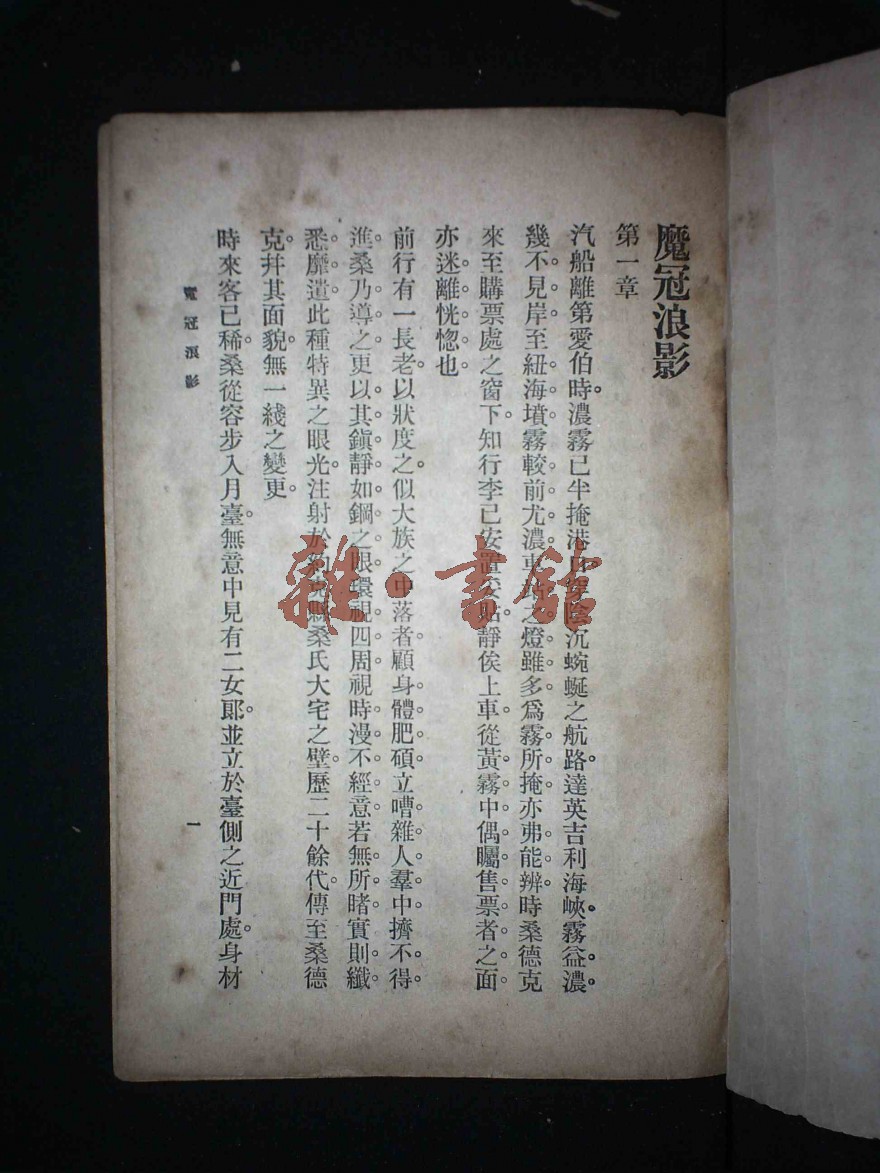 魔冠浪影
第一章
汽船離第愛伯時。濃霧已半掩港口。穿陰沉蜿蜒之航路。達英吉利海峽。霧益濃。
幾不見岸。至紐海墳。霧較前尤濃。車站之燈雖多。爲霧所掩。亦弗能辨。時桑德克
來至購票處之窗下。知行李已安置妥貼。靜俟上車。從黃霧中偶矚售票者之面。
亦迷離恍惚也。
前行有一長老。以狀度之。似大族之中落者。顧身體肥碩。立嘈雜人羣中。擠不得
進。桑乃導之。更以其鎮靜如鋼之眼。環視四周。視時漫不經意。若無所睹。實則纖
悉靡遺。此種特異之眼光。注射於約克縣桑氏大宅之壁。歷二十餘代。傳至桑德
克。幷其面貌。無一綫之變更。
時來客已稀。桑從容步入月臺。無意中見有二女郎。並立於臺側之近門處。身材
魔冠浪影
一
雜·書館